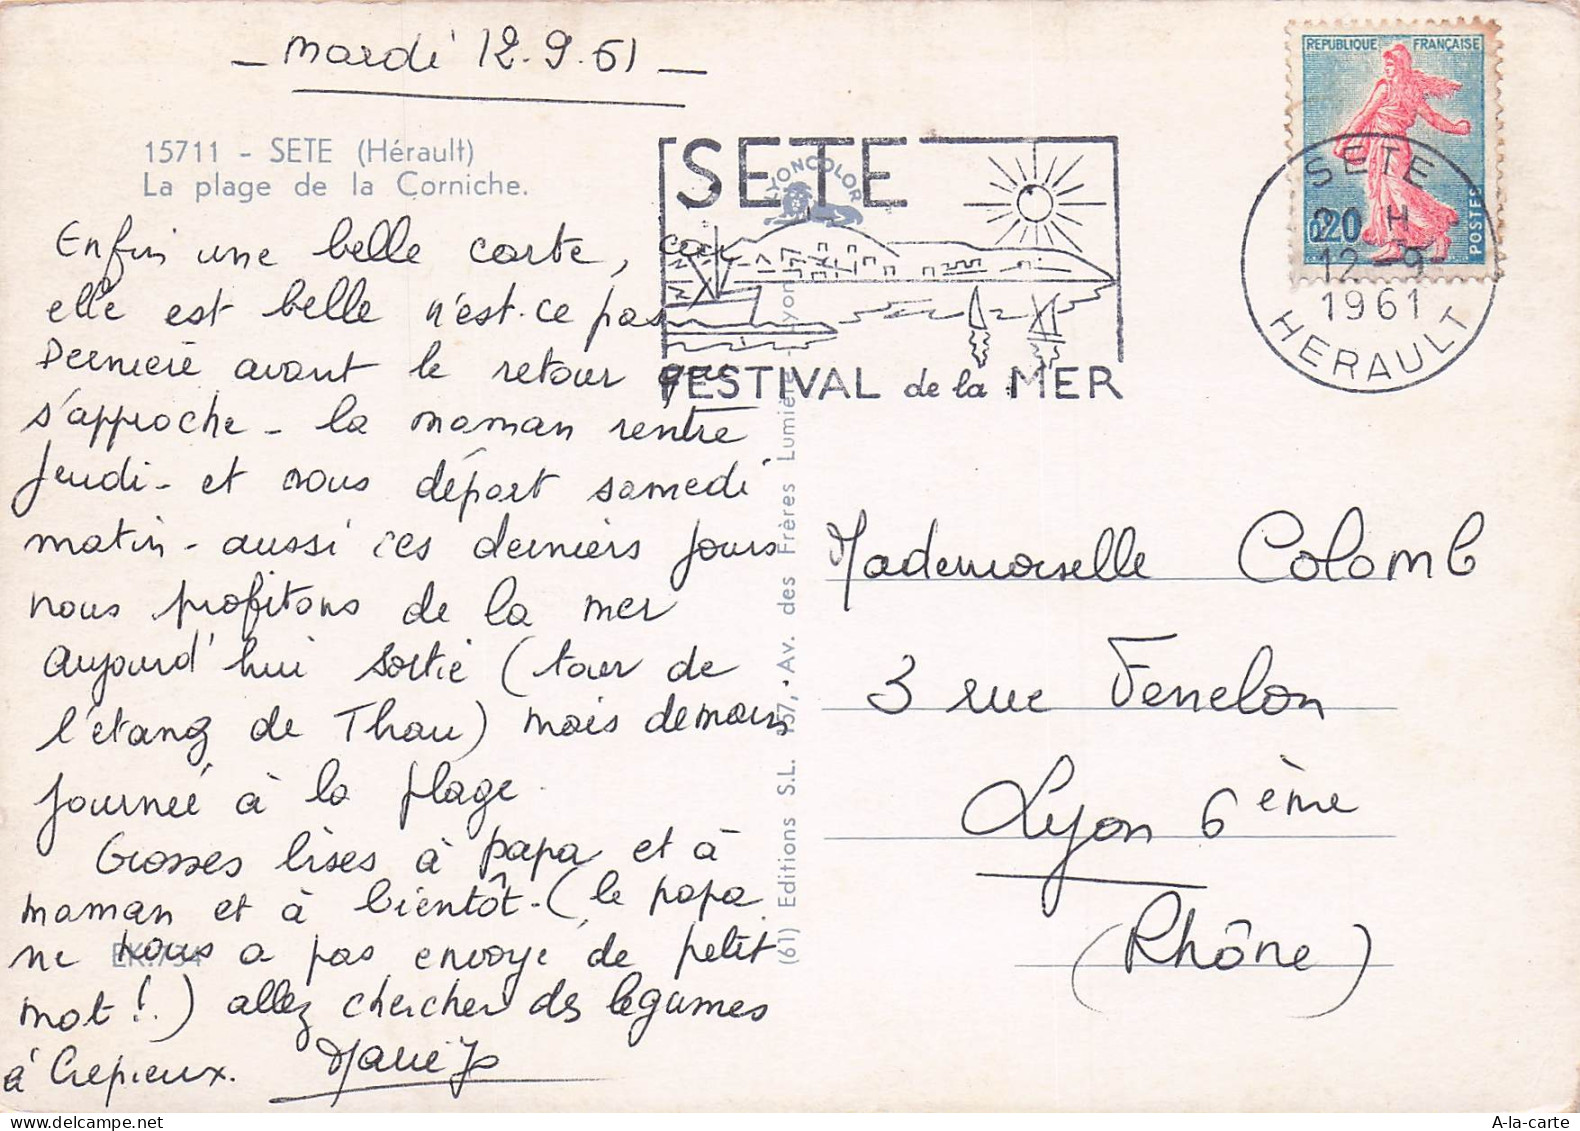 mardi 12.9.61
15711 - SETE (Hérault)
La plage de la Corniche.
Enfin une belle carte, car
elle est belle n'est-ce pas
Dernière avant le retour qui
s'approche - la maman rentre
jeudi - et nous départ samedi
matin - aussi ces derniers jours
nous profitons de la mer
aujourd'hui sortie (tour de
l'étang de Thau) mais demain
journée à la plage.
Grosses bises à papa et à
maman et à bientôt - (le papa
ne nous a pas envoyé de petit
mot !.) allez chercher des légumes
à Crépieux. Marie Jo
SETE
FESTIVAL de la MER
LYONCOLOR
(61) Editions S.L. 157, Av. des Frères Lumière - Lyon
REPUBLIQUE FRANÇAISE
0,20
POSTES
SETE
20 H
12 - 9
1961
HERAULT
Mademoiselle Colomb
3 rue Fenelon
Lyon 6ème
(Rhône)
A-la-carte